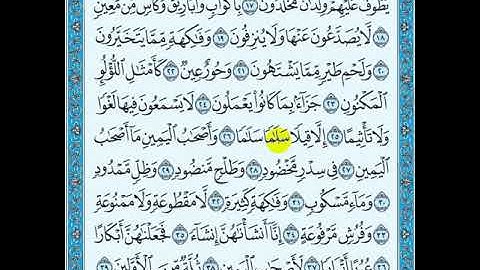 يَطُوفُ عَلَيْهِمْ وِلْدَٰنٌ مُّخَلَّدُونَ ١٧ بِأَكْوَابٍ وَأَبَارِيقَ وَكَأْسٍ مِّن مَّعِينٍ
١٨ لَّا يُصَدَّعُونَ عَنْهَا وَلَا يُنزِفُونَ ١٩ وَفَٰكِهَةٍ مِّمَّا يَتَخَيَّرُونَ
٢٠ وَلَحْمِ طَيْرٍ مِّمَّا يَشْتَهُونَ ٢١ وَحُورٌ عِينٌ ٢٢ كَأَمْثَٰلِ ٱللُّؤْلُؤِ
ٱلْمَكْنُونِ ٢٣ جَزَآءًۢ بِمَا كَانُوا۟ يَعْمَلُونَ ٢٤ لَا يَسْمَعُونَ فِيهَا لَغْوًا
وَلَا تَأْثِيمًا ٢٥ إِلَّا قِيلًا سَلَٰمًا سَلَٰمًا ٢٦ وَأَصْحَٰبُ ٱلْيَمِينِ مَآ أَصْحَٰبُ
ٱلْيَمِينِ ٢٧ فِى سِدْرٍ مَّخْضُودٍ ٢٨ وَطَلْحٍ مَّنضُودٍ ٢٩ وَظِلٍّ مَّمْدُودٍ
٣٠ وَمَآءٍ مَّسْكُوبٍ ٣١ وَفَٰكِهَةٍ كَثِيرَةٍ ٣٢ لَّا مَقْطُوعَةٍ وَلَا مَمْنُوعَةٍ
٣٣ وَفُرُشٍ مَّرْفُوعَةٍ ٣٤ إِنَّآ أَنشَأْنَٰهُنَّ إِنشَآءً ٣٥ فَجَعَلْنَٰهُنَّ أَبْكَارًا
٣٦ عُرُبًا أَتْرَابًا ٣٧ لِّأَصْحَٰبِ ٱلْيَمِينِ ٣٨ ثُلَّةٌ مِّنَ ٱلْأَوَّلِينَ ٣٩